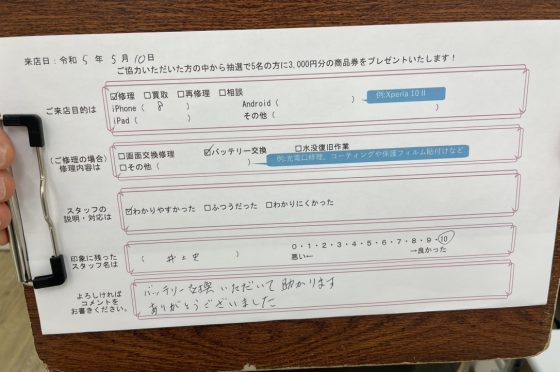 来店日：令和 5 年 5 月 10 日
ご協力いただいた方の中から抽選で5名の方に3,000円分の商品券をプレゼントいたします！
ご来店目的は
☑修理 □買取 □再修理 □相談
iPhone ( 8 ) Android ( ) 例:Xperia 10 Ⅱ
iPad ( ) その他 ( )
(ご修理の場合)
修理内容は
□画面交換修理 ☑バッテリー交換 □水没復旧作業
□その他 ( ) 例:充電口修理、コーティングや保護フィルム貼付けなど
スタッフの
説明・対応は
☑わかりやすかった □ふつうだった □わかりにくかった
印象に残った
スタッフ名は
( 井上 )
0・1・2・3・4・5・6・7・8・9・10
悪い← →良かった
よろしければ
コメントを
お書きください。
バッテリー交換いただいて助かります
ありがとうございました